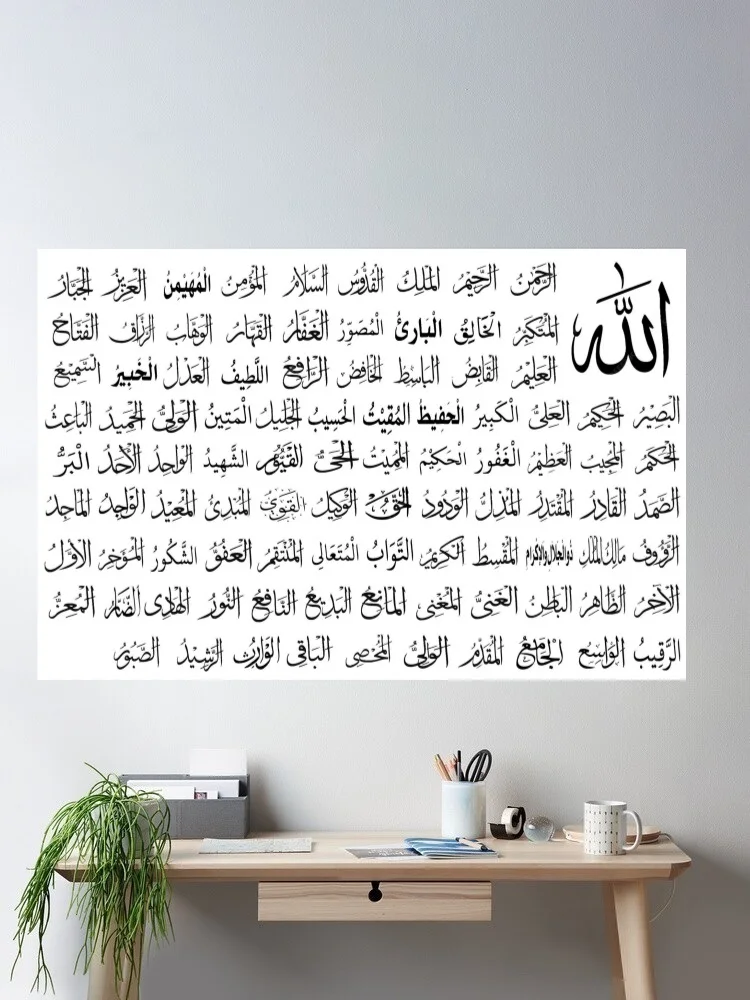 الله
الرَّحْمٰنُ الرَّحِيْمُ المَلِكُ القُدُّوْسُ السَّلَامُ المُؤْمِنُ الْمُهَيْمِنُ العَزِيْزُ الجَبَّارُ
المُتَكَبِّرُ الْخَالِقُ الْبَارِئُ المُصَوِّرُ الغَفَّارُ القَهَّارُ الوَهَّابُ الرَّزَّاقُ الفَتَّاحُ
العَلِيْمُ القَابِضُ البَاسِطُ الخَافِضُ الرَّافِعُ اللَّطِيفُ العَدْلُ الْخَبِيرُ السَّمِيْعُ
البَصِيْرُ الحَكِيْمُ العَلِىُّ الْكَبِيرُ الْحَفِيظُ المُقِيْتُ الْحَسِيبُ الجَلِيْلُ الْمَتِينُ الوَلِىُّ الحَمِيْدُ البَاعِثُ
الحَكَمُ المُجِيْبُ العَظِيْمُ الْغَفُورُ الحَكِيْمُ المُمِيْتُ الحَىُّ القَيُّوْمُ الشَّهِيدُ الوَاحِدُ الأَحَدُ البَرُّ
الصَّمَدُ القَادِرُ المُقْتَدِرُ المُذِلُّ الوَدُودُ الحَقُّ الوَكِيْلُ القَوِىُّ المُبْدِئُ المُعِيْدُ الوَاجِدُ المَاجِدُ
الرَّؤُوفُ مَالِكُ المُلْكِ ذوالجلال والإكرام المُقْسِطُ الكَرِيْمُ التَّوَابُ المُتَعَالِى المُنْتَقِمُ العَفُوُّ الشَّكُورُ المُؤَخِّرُ الأَوَّلُ
الآخِرُ الظَّاهِرُ البَاطِنُ الغَنِىُّ المُغْنِى المَانِعُ البَدِيعُ النَّافِعُ النُّورُ الهَادِى الضَّارُ المُعِزُّ
الرَّقِيبُ الوَاسِعُ الجَامِعُ المُقَدِّمُ الوَالِىُّ المُحْصِى البَاقِى الوَارِثُ الرَّشِيْدُ الصَّبُوْرُ